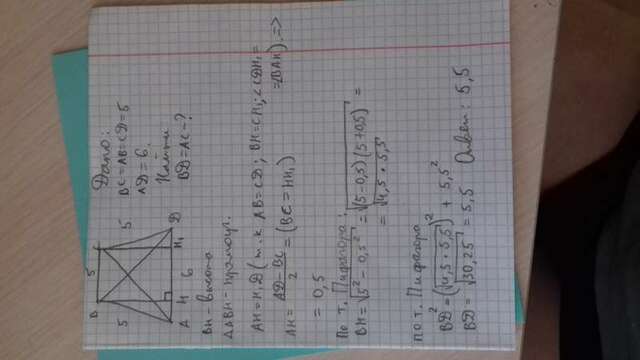 B 5 C
5 5
A H 6 H₁ D
Дано:
BC = AB = CD = 5
AD = 6.
Найти
BD = AC - ?
BH - высота
ΔABH - прямоуг.
AH = H₁D (т.к AB = CD; BH = CH₁; ∠CDH₁ =
= ∠BAH). =>
AH = (AD - BC)/2 = (BC = HH₁)
= 0,5
По т. Пифагора:
BH = √(5² - 0,5²) = √((5 - 0,5)(5 + 0,5)) =
= √(4,5 · 5,5)
по т. Пифагора
BD² = (√(4,5 · 5,5))² + 5,5²
BD = √30,25 = 5,5 Ответ: 5,5